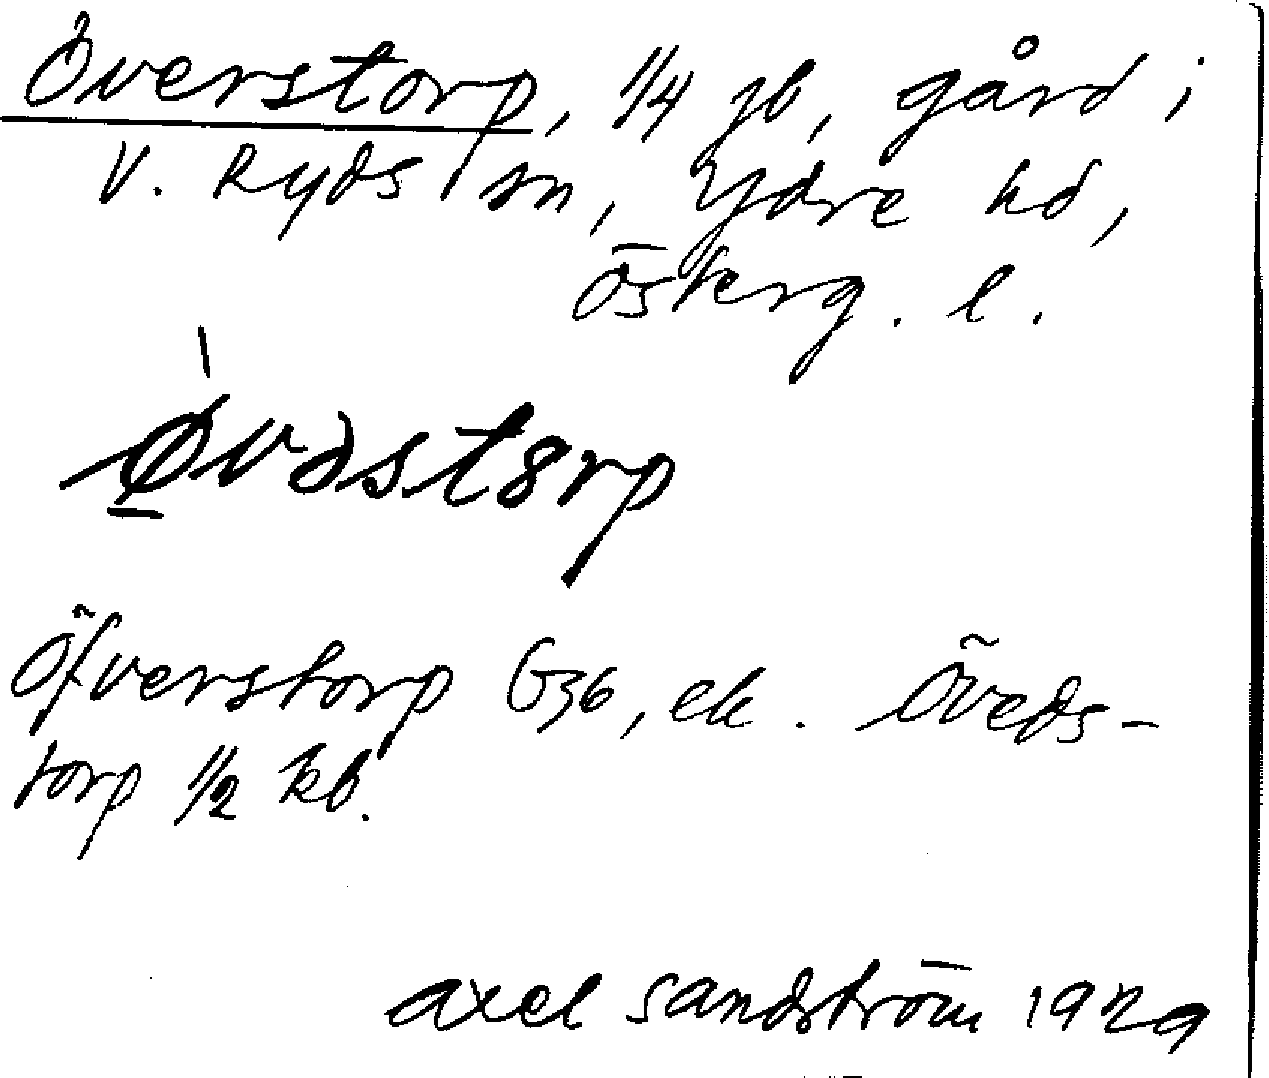 Överstorp, 1/4 jb, gård i
V. Ryds sn, Ydre hd,
Österg. l.
Øvəstorp
Öfverstorp G36, ek. Öveds-
torp 1/2 kb.
Axel Sandström 1929